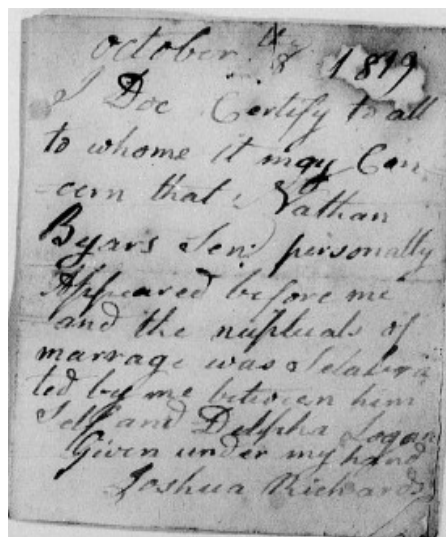 october 8 1819
I Doe Certify to all
to whome it may Con
cern that Nathan
Byars Sen personally
Appeared before me
and the nuptuals of
marrage was Selabra
ted by me between him
Self and Delpha Logan
Given under my hand
Joshua Richards